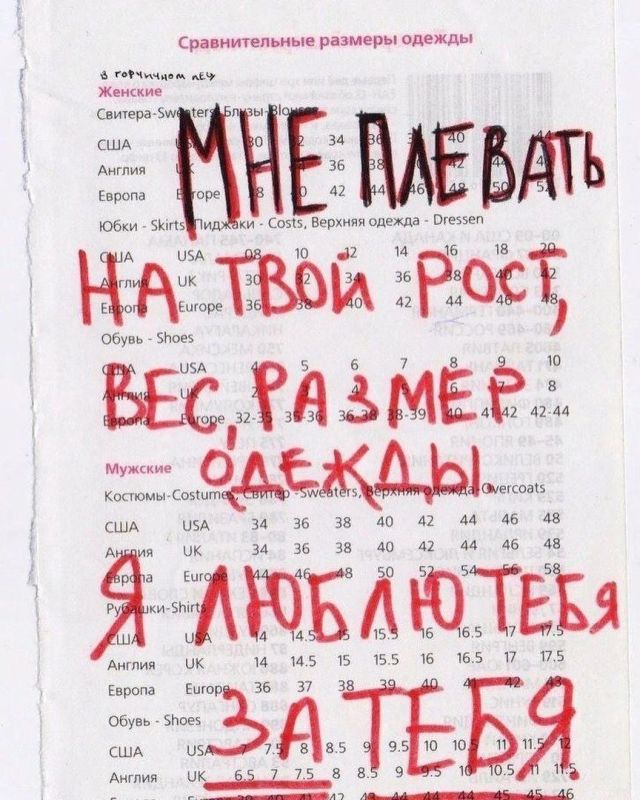 Сравнительные размеры одежды
в горчичном
Женские
Свитера-Sweaters, Блузы-Blouses
МНЕ ПЛЕВАТЬ
США 30 32 34 36 40 44
Англия UK 36 38 42 44
Европа Europe 38 40 42 44 46 48 50 52
Юбки - Skirts, Пиджаки - Costs, Верхняя одежда - Dressen
США USA 08 10 12 14 16 18 20
НА ТВОЙ РОСТ,
Англия UK 30 32 34 36 38 40 42
Европа Europe 36 38 40 42 44 46 48
Обувь - Shoes
США USA 4 5 6 7 8 9 10
ВЕС, РАЗМЕР
Англия UK 2 3 4 6 7 8
Европа Europe 32-35 35-36 36-38 38-39 40 41-42 42-44
Мужские
ОДЕЖДЫ.
Костюмы-Costumes, Свитер -Sweaters, Верхняя одежда-Overcoats
США USA 34 36 38 40 42 44 46 48
Англия UK 34 36 38 40 42 44 46 48
Европа Europe 44 46 48 50 52 54 56 58
Рубашки-Shirts
Я ЛЮБЛЮ ТЕБЯ
США USA 14 14.5 15 15.5 16 16.5 17 17.5
Англия UK 14 14.5 15 15.5 16 16.5 17 17.5
Европа Europe 36 37 38 39 40 41 42 43
Обувь - Shoes
ЗА ТЕБЯ
США USA 7 7.5 8 8.5 9 9.5 10 10.5 11 11.5 12
Англия UK 6.5 7 7.5 8 8.5 9 9.5 10 10.5 11 11.5